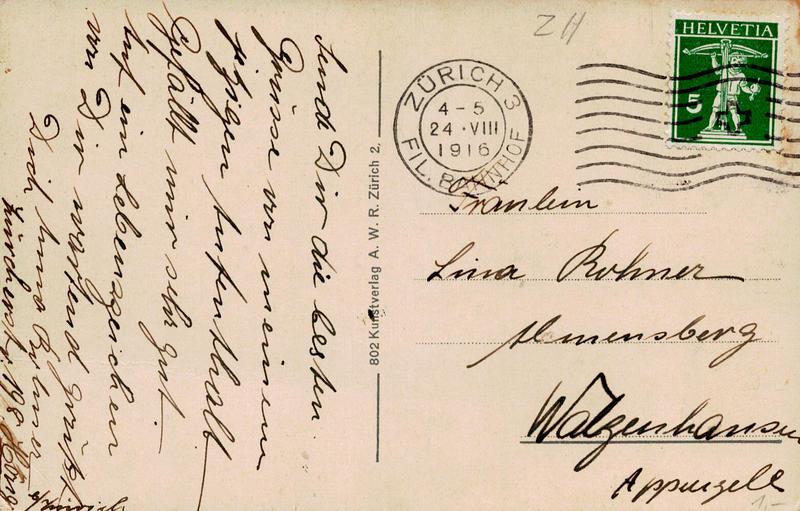 Sende Dir die besten
Grüsse von meinem
jetzigen Aufenthalt
Gefällt mir sehr gut.
Auf ein Lebenszeichen
von Dir wartend grüßt
Dich Anna Rohner
Zürcherstr. 198 Höng
b/Zürich
802 Kunstverlag A. W. R. Zürich 2,
ZH
HELVETIA
5
ZÜRICH 3
4-5
24·VIII
1916
FIL. BAHNHOF
Fräulein
Lina Rohner
Almensberg
Walzenhausen
Appenzell
1.-